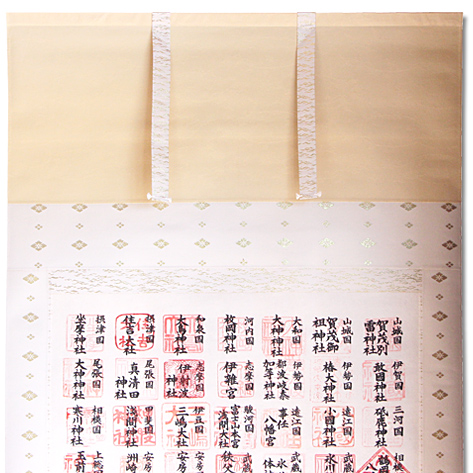 山城国
賀茂別
雷神社
山城国
賀茂御
祖神社
大和国
大神神社
河内国
枚岡神社
和泉国
大鳥大社
摂津国
住吉大社
摂津国
坐摩神社
伊賀国
敢國神社
伊勢国
椿大神社
伊勢国
都波岐奈
加等神社
志摩国
伊雜宮
志摩国
伊射波
神社
尾張国
真清田
神社
尾張国
大神神社
三河国
砥鹿神社
遠江国
小國神社
遠江国
事任
八幡宮
駿河国
富士山本宮
浅間大社
伊豆国
三嶋大社
甲斐国
浅間神社
相模国
寒川神社
相
鶴
武蔵
氷川
武蔵
武蔵
秩父
安房
安房
安房
洲崎
上総
玉前